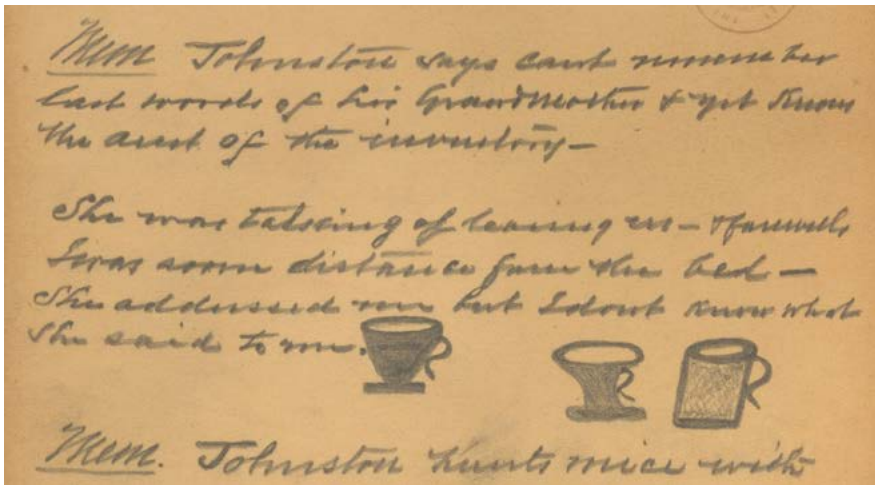 Mem Johnston says cant remember
last words of his Grandmother & yet knows
the amt of the inventory-
She was talking of leaving us - & farewells
I was some distance from the bed -
She addressed me but I dont know what
She said to me.
Mem. Johnston hunts mice with